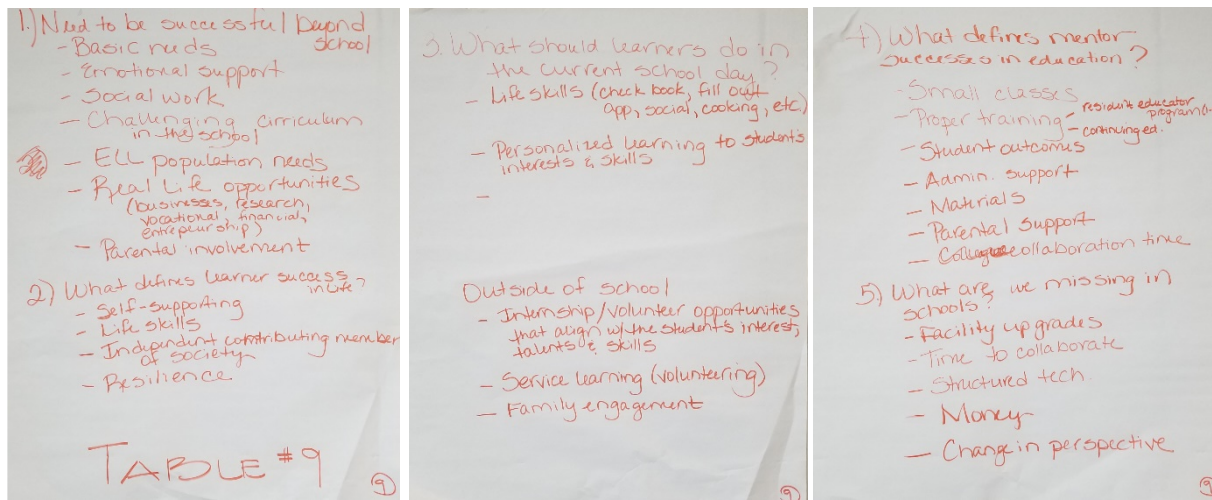 1.) Need to be successful beyond
school
- Basic needs
- Emotional support
- Social work
- Challenging cirriculum
in the school
- ELL population needs
- Real Life opportunities
(businesses, research,
vocational, financial,
entrepeurship)
- Parental involvement
2) What defines learner success
in life?
- Self-supporting
- Life skills
- Independent contributing member
of society
- Resilience
TABLE #9
9
3. What should learners do in
the current school day?
- Life skills (check book, fill out
app, social, cooking, etc.)
- Personalized learning to students
interests & skills
-
Outside of school
- Internship/volunteer opportunities
that align w/the student's interest,
talents & skills
- Service learning (volunteering)
- Family engagement
9
4) What defines mentor
successes in education?
- Small classes
- Proper training - resident educator
program
- continuing ed.
- Student outcomes
- Admin. support
- Materials
- Parental support
- collaboration time
5) What are we missing in
schools?
- Facility upgrades
- Time to collaborate
- Structured tech.
- Money
- Change in perspective
9